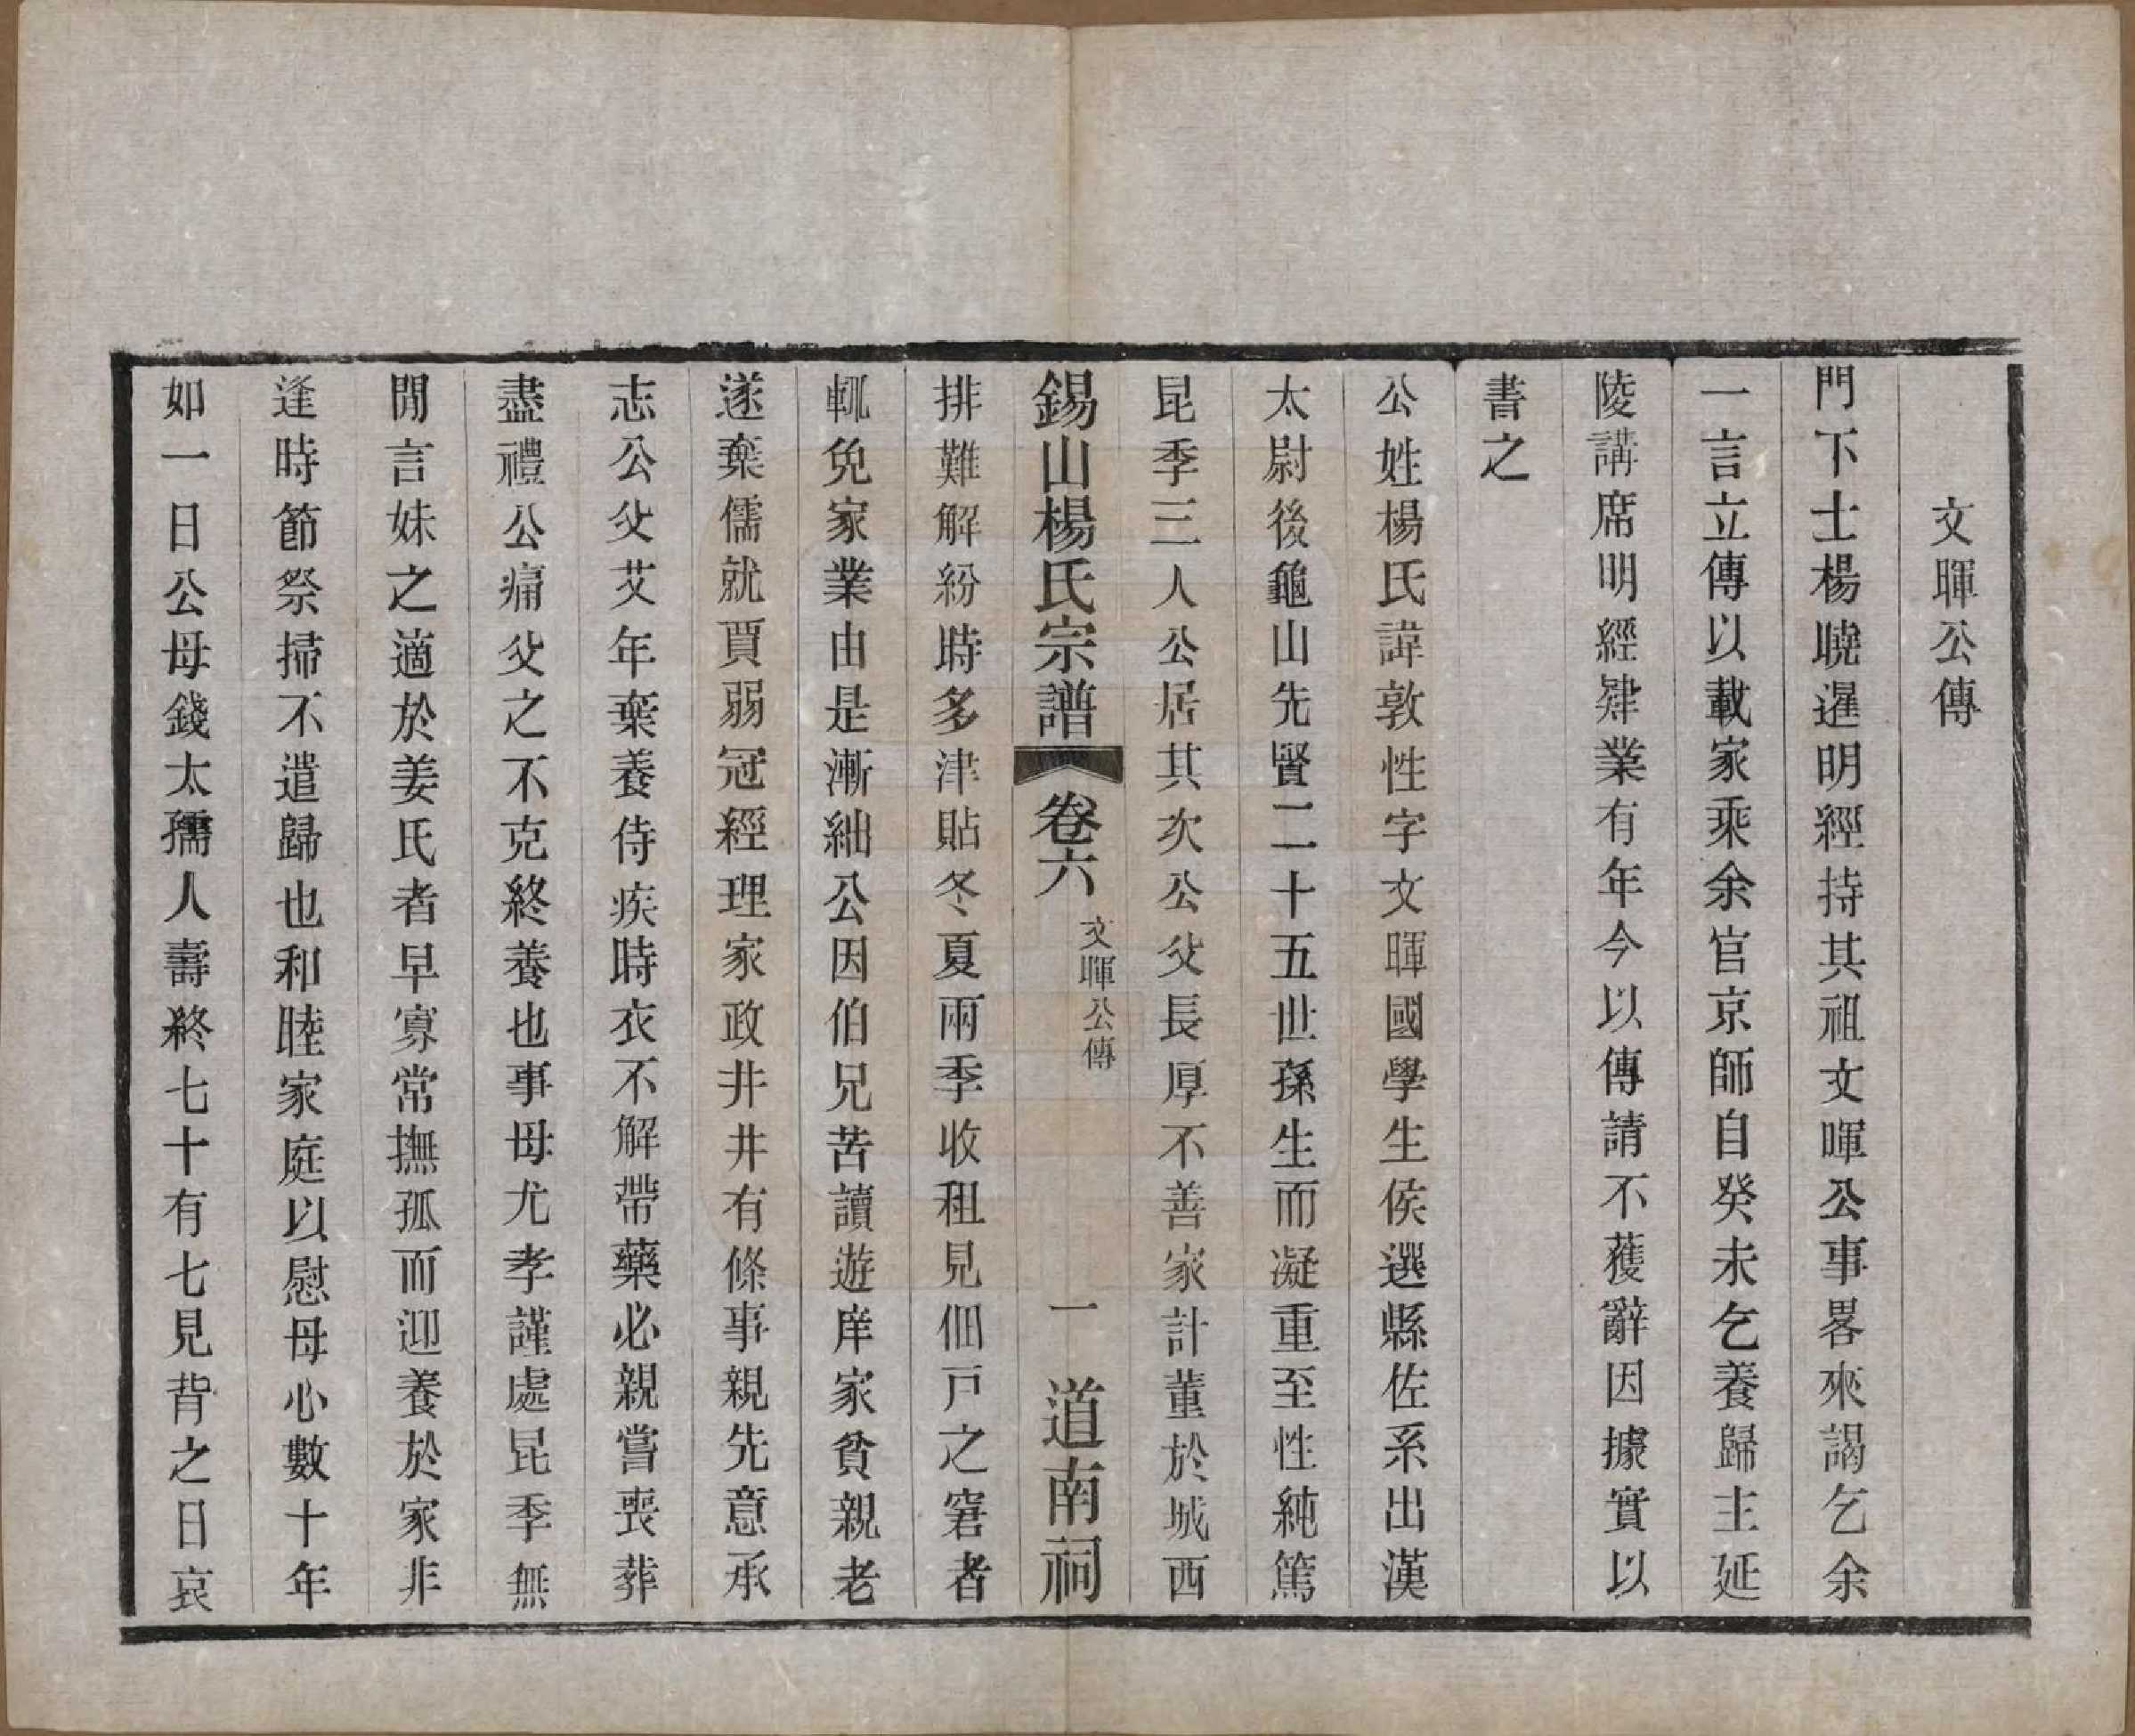 文暉公傳
門下士楊曉暹明經持其祖文暉公事畧來謁乞余
一言立傳以載家乘余官京師自癸未乞養歸主延
陵講席明經肄業有年今以傳請不獲辭因據實以
書之
公姓楊氏諱敦性字文暉國學生候選縣佐系出漢
太尉後龜山先賢二十五世孫生而凝重至性純篤
昆季三人公居其次公父長厚不善家計董於城西
錫山楊氏宗譜 卷六 文暉公傳 一 道南祠
排難解紛時多津貼冬夏兩季收租見佃戸之窘者
輒免家業由是漸絀公因伯兄苦讀遊庠家貧親老
遂棄儒就賈弱冠經理家政井井有條事親先意承
志公父艾年棄養侍疾時衣不解帶藥必親嘗喪葬
盡禮公痛父之不克終養也事母尤孝謹處昆季無
閒言妹之適於姜氏者早寡常撫孤而迎養於家非
逢時節祭掃不遣歸也和睦家庭以慰母心數十年
如一日公母錢太孺人壽終七十有七見背之日哀